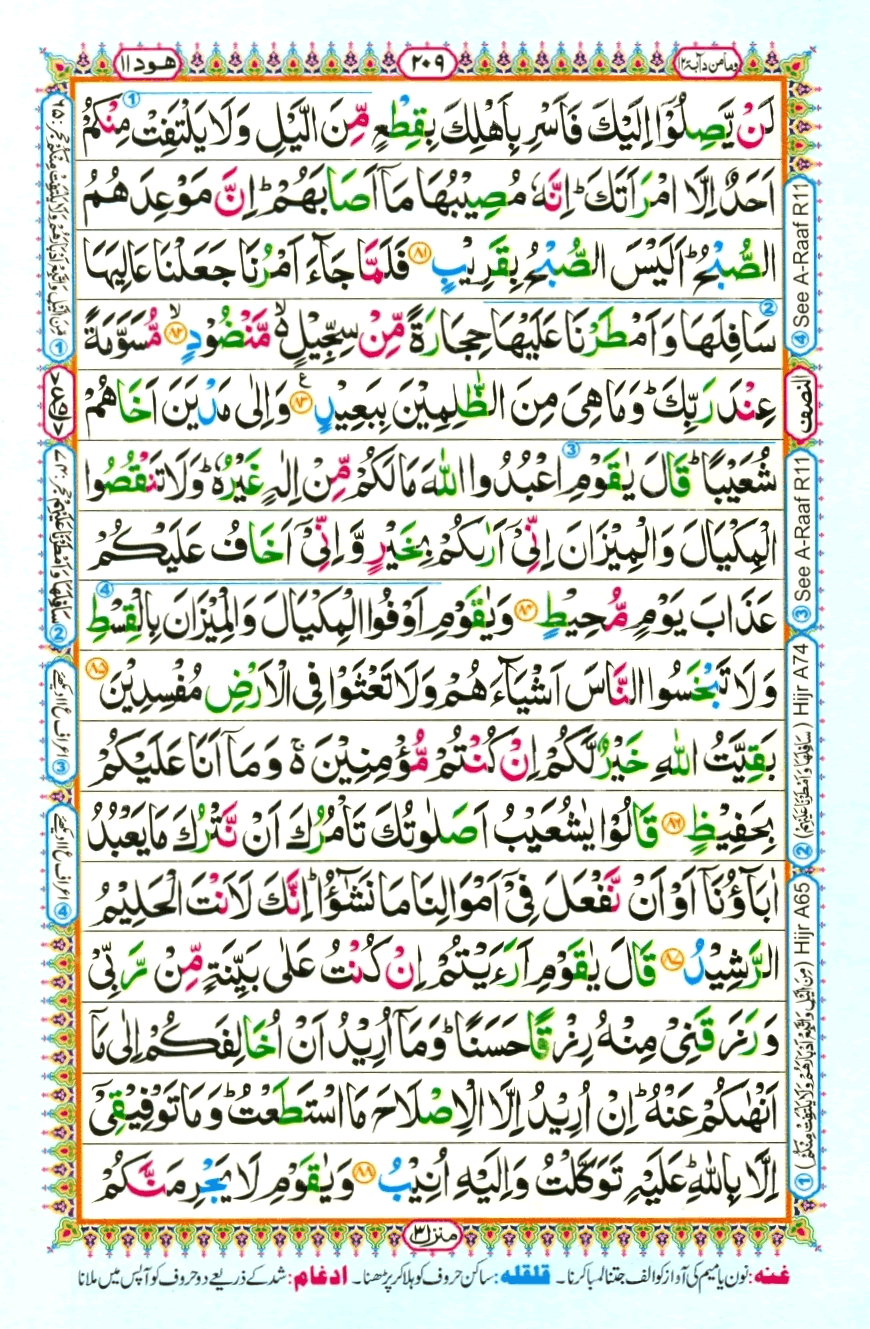 وما من دآبۃ ۱۲
۲۰۹
ھود ۱۱
لَنْ يَّصِلُوْۤا اِلَيْكَ فَاَسْرِ بِاَهْلِكَ بِقِطْعٍ مِّنَ الَّيْلِ وَلَا يَلْتَفِتْ مِنْكُمْ ①
اَحَدٌ اِلَّا امْرَاَتَكَ ؕ اِنَّهٗ مُصِيْبُهَا مَاۤ اَصَابَهُمْ ؕ اِنَّ مَوْعِدَهُمُ
الصُّبْحُ ؕ اَلَيْسَ الصُّبْحُ بِقَرِيْبٍ ﴿۸۱﴾ فَلَمَّا جَآءَ اَمْرُنَا جَعَلْنَا عَالِيَهَا
سَافِلَهَا وَاَمْطَرْنَا عَلَيْهَا حِجَارَةً مِّنْ سِجِّيْلٍ ۙ مَّنْضُوْدٍ ۙ﴿۸۲﴾ مُّسَوَّمَةً ②
عِنْدَ رَبِّكَ ؕ وَمَا هِىَ مِنَ الظّٰلِمِيْنَ بِبَعِيْدٍ ﴿۸۳﴾ ع وَاِلٰى مَدْيَنَ اَخَاهُمْ
شُعَيْبًا ؕ قَالَ يٰقَوْمِ اعْبُدُوا اللّٰهَ مَا لَكُمْ مِّنْ اِلٰهٍ غَيْرُهٗ ؕ وَلَا تَنْقُصُوا ③
الْمِكْيَالَ وَالْمِيْزَانَ اِنِّىْۤ اَرٰىكُمْ بِخَيْرٍ وَّاِنِّىْۤ اَخَافُ عَلَيْكُمْ
عَذَابَ يَوْمٍ مُّحِيْطٍ ﴿۸۴﴾ وَيٰقَوْمِ اَوْفُوا الْمِكْيَالَ وَالْمِيْزَانَ بِالْقِسْطِ ④
وَلَا تَبْخَسُوا النَّاسَ اَشْيَآءَهُمْ وَلَا تَعْثَوْا فِى الْاَرْضِ مُفْسِدِيْنَ ﴿۸۵﴾
بَقِيَّتُ اللّٰهِ خَيْرٌ لَّكُمْ اِنْ كُنْتُمْ مُّؤْمِنِيْنَ ۚ۬ وَمَاۤ اَنَا عَلَيْكُمْ
بِحَفِيْظٍ ﴿۸۶﴾ قَالُوْا يٰشُعَيْبُ اَصَلٰوتُكَ تَاْمُرُكَ اَنْ نَّتْرُكَ مَا يَعْبُدُ
اٰبَآؤُنَاۤ اَوْ اَنْ نَّفْعَلَ فِىْۤ اَمْوَالِنَا مَا نَشٰٓؤُا ؕ اِنَّكَ لَاَنْتَ الْحَلِيْمُ
الرَّشِيْدُ ﴿۸۷﴾ قَالَ يٰقَوْمِ اَرَءَيْتُمْ اِنْ كُنْتُ عَلٰى بَيِّنَةٍ مِّنْ رَّبِّىْ
وَرَزَقَنِىْ مِنْهُ رِزْقًا حَسَنًا ؕ وَمَاۤ اُرِيْدُ اَنْ اُخَالِفَكُمْ اِلٰى مَاۤ
اَنْهٰىكُمْ عَنْهُ ؕ اِنْ اُرِيْدُ اِلَّا الْاِصْلَاحَ مَا اسْتَطَعْتُ ؕ وَمَا تَوْفِيْقِىْۤ
اِلَّا بِاللّٰهِ ؕ عَلَيْهِ تَوَكَّلْتُ وَاِلَيْهِ اُنِيْبُ ﴿۸۸﴾ وَيٰقَوْمِ لَا يَجْرِمَنَّكُمْ
④ See A-Raaf R11
النصف
③ See A-Raaf R11
② (سَافِلَهَا وَاَمْطَرْنَا عَلَيْهِمْ) Hijr A74
① (مِنَ الَّيْلِ وَاتَّبِعْ اَدْبَارَهُمْ وَلَا يَلْتَفِتْ مِنْكُمْ) Hijr A65
① مِنَ الَّيْلِ وَاتَّبِعْ اَدْبَارَهُمْ وَلَا يَلْتَفِتْ مِنْكُمْ حجر : ۶۵
② سَافِلَهَا وَاَمْطَرْنَا عَلَيْهِمْ حجر : ۷۴
③ اعراف ع ۱۱ دیکھئے
④ اعراف ع ۱۱ دیکھئے
منزل ۳
غنه: نون یا میم کی آواز کو الف جتنا لمبا کرنا۔ قلقله: ساکن حروف کو ہلا کر پڑھنا۔ ادغام: شد کے ذریعے دو حروف کو آپس میں ملانا